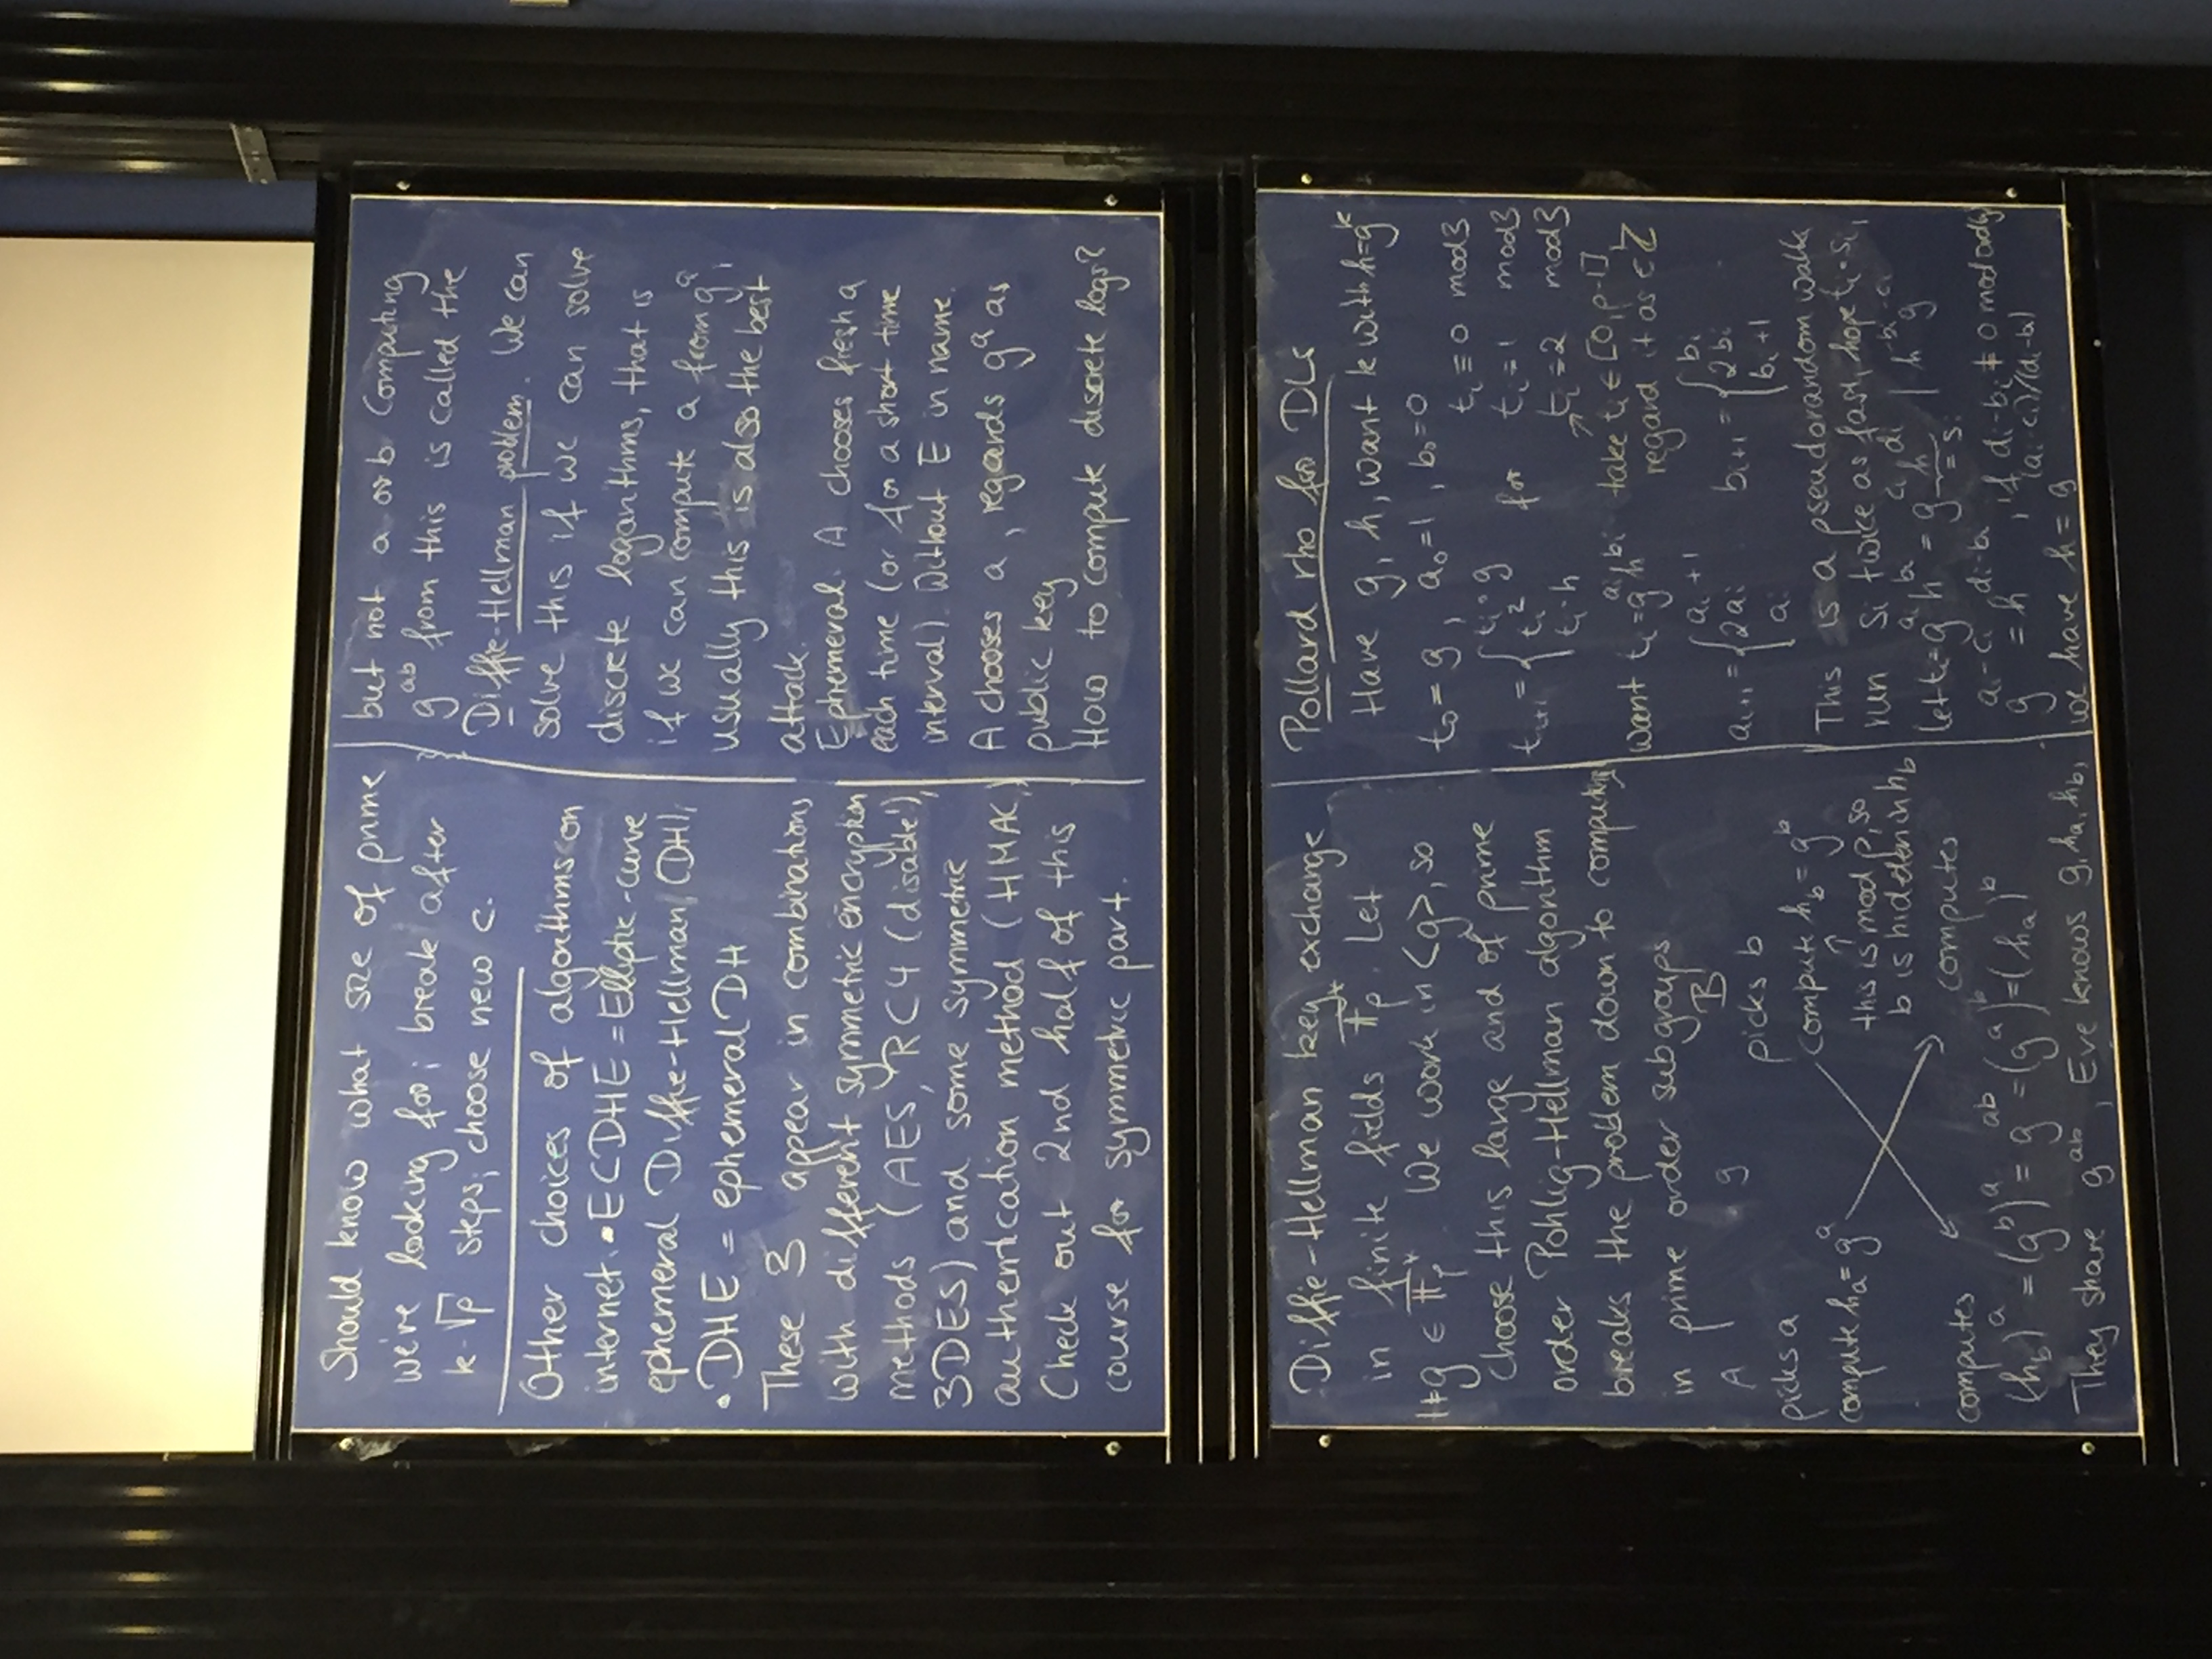 Should know what size of prime
we're looking for; break after
k·√p steps; choose new c.
Other choices of algorithms on
internet: • ECDHE = Elliptic-curve
ephemeral Diffie-Hellman, (DH),
• DHE = ephemeral DH
These 3 appear in combinations
with different symmetric encryption
methods (AES, RC4 (disable!),
3DES) and some symmetric
authentication method (HMAC,)
Check out 2nd half of this
course for symmetric part.
but not a or b. Computing
g^ab from this is called the
Diffie-Hellman problem. We can
solve this if we can solve
discrete logarithms, that is
if we can compute a from g^a;
usually this is also the best
attack.
Ephemeral: A chooses fresh a
each time (or for a short time
interval). Without E in name:
A chooses a, regards g^a as
public key
How to compute discrete logs?
Diffie-Hellman key exchange
in finite fields 𝔽p*. Let
1≠g ∈ 𝔽p*. We work in <g>, so
choose this large and of prime
order Pohlig-Hellman algorithm
breaks the problem down to computing
in prime order subgroups
A g B
picks a picks b
compute ha = g^a compute hb = g^b
↑
this is mod p, so
b is hidden in hb
computes computes
(hb)^a = (g^b)^a = g^ab = (g^a)^b = (ha)^b
They share g^ab, Eve knows g, ha, hb,
Pollard rho for DLs
Have g, h, want k with h=g^k
t0 = g, a0=1, b0=0
ti+1 = { ti·g for ti ≡ 0 mod 3
ti^2 ti ≡ 1 mod 3
ti·h ti ≡ 2 mod 3
want ti = g^ai h^bi take ti ∈ [0,p-1]
regard it as ∈ ℤ
ai+1 = { ai+1 bi+1 = { bi
2ai 2bi
ai bi+1
This is a pseudorandom walk
run si twice as fast, hope ti=si,
Let ti=g^ai h^bi = g^ci h^di = si
g^ai-ci = h^di-bi, if di-bi ≠ 0 mod ord g
we have h = g^(ai-ci)/(di-bi)